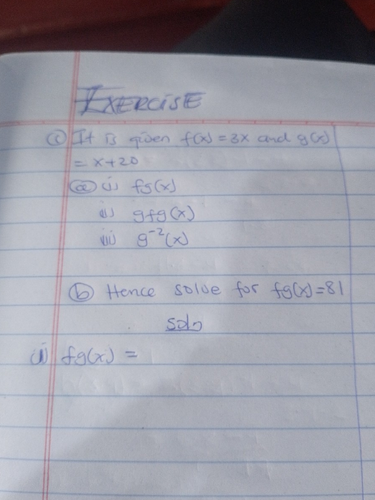 EXERCISE
(c) It is given f(x) = 3x and g(x)
= x+20
(a) (i) fg(x)
ii) gfg(x)
iii) g⁻²(x)
(b) Hence solve for fg(x)=81
soln
(i) fg(x) =